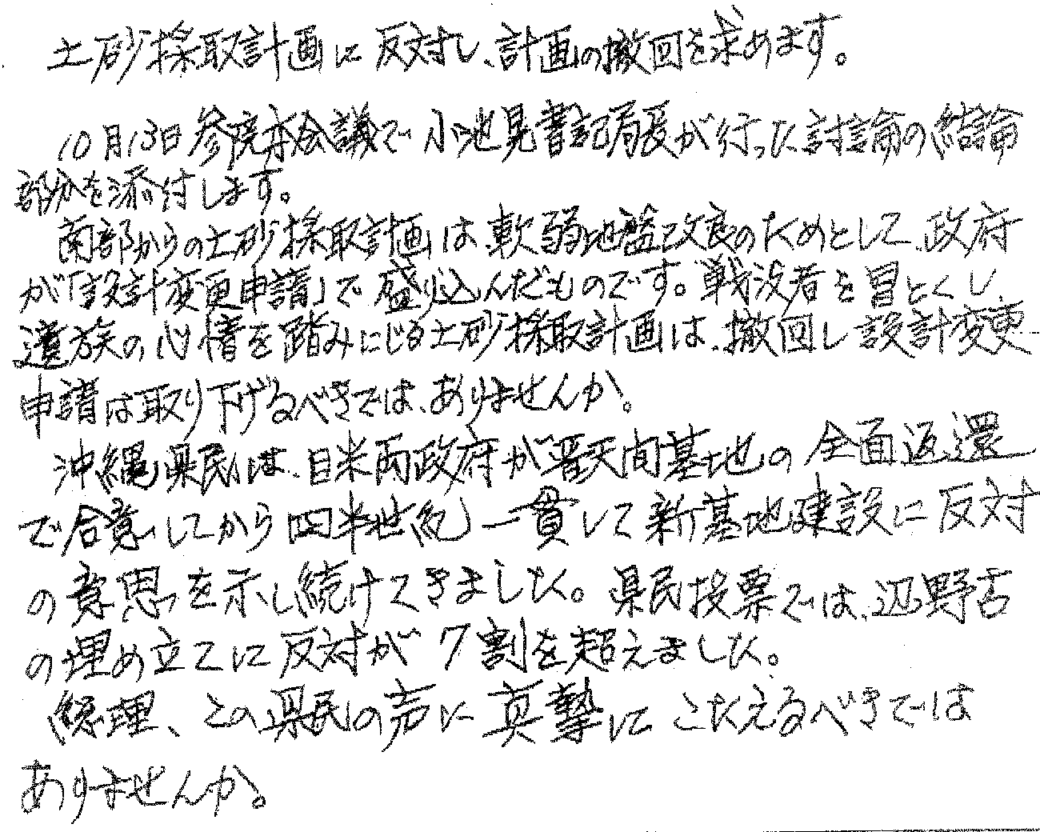 土砂採取計画に反対し、計画の撤回を求めます。
10月13日参院本会議で小池晃書記局長が行った討論の結論
部分を添付します。
南部からの土砂採取計画は、軟弱地盤改良のためとして、政府
が「設計変更申請」で盛り込んだものです。戦没者を冒とくし、
遺族の心情を踏みにじる土砂採取計画は、撤回し設計変更
申請は取り下げるべきでは、ありませんか。
沖縄県民は、日米両政府が普天間基地の全面返還
で合意してから四半世紀、一貫して新基地建設に反対
の意思を示し続けてきました。県民投票では、辺野古
の埋め立てに反対が7割を超えました。
総理、この県民の声に真摯にこたえるべきでは
ありませんか。